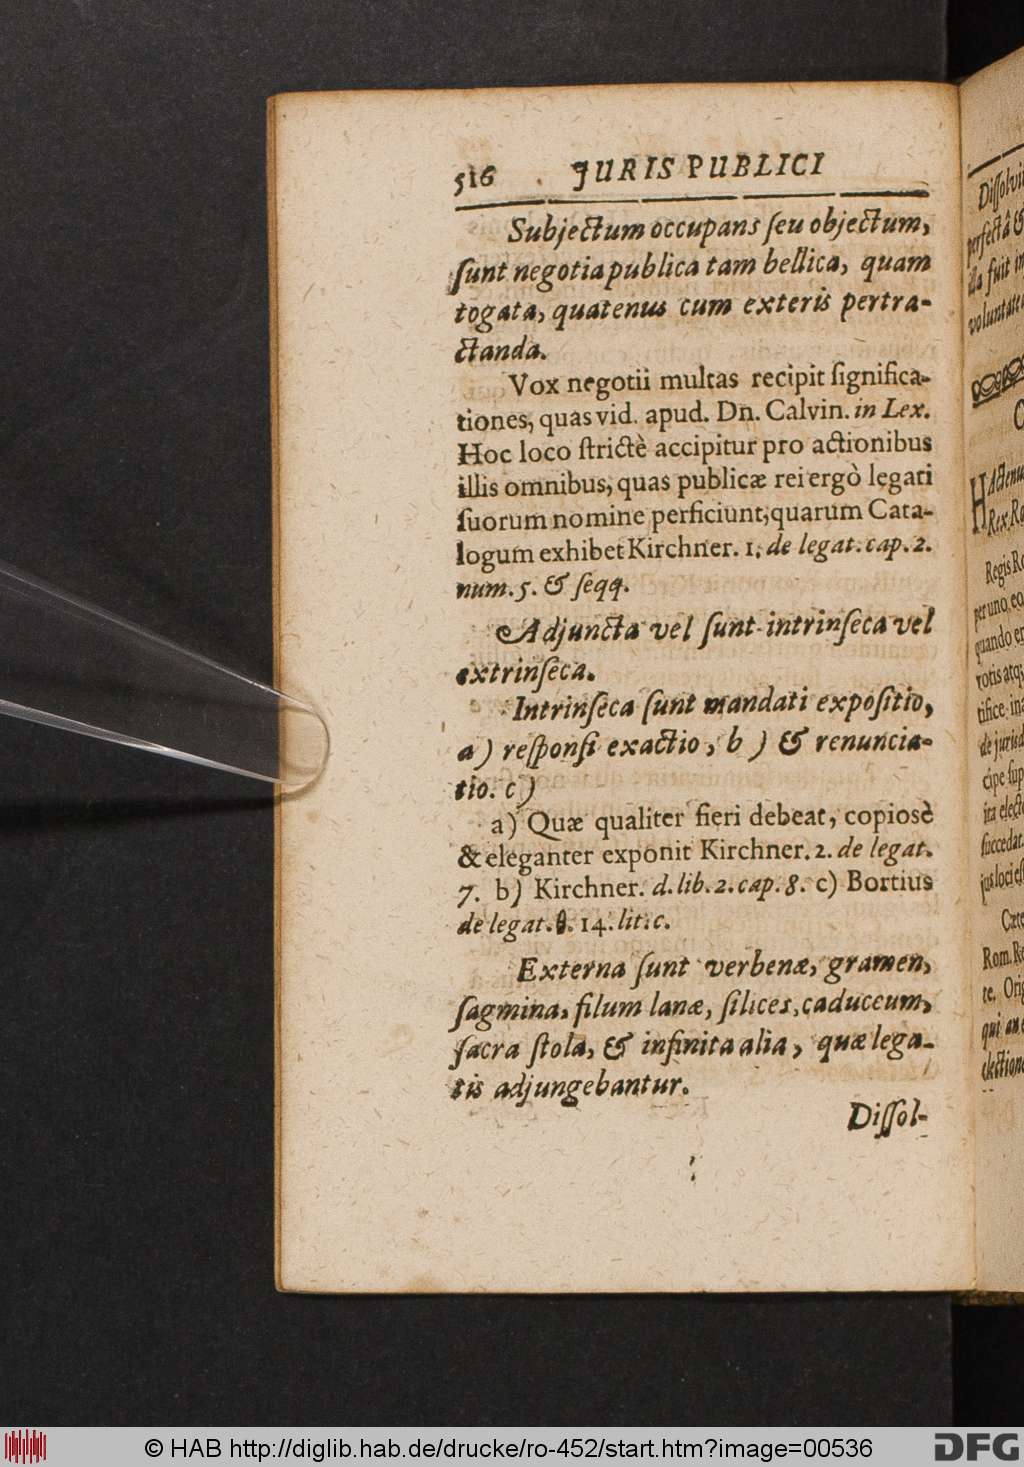 516 JURIS PUBLICI
Subjectum occupans ſeu objectum,
ſunt negotia publica tam bellica, quam
togata, quatenus cum exteris pertra-
ctanda.
Vox negotii multas recipit ſignifica-
tiones, quas vid. apud. Dn. Calvin. in Lex.
Hoc loco ſtrictè accipitur pro actionibus
illis omnibus, quas publicæ rei ergò legati
ſuorum nomine perficiunt, quarum Cata-
logum exhibet Kirchner. 1. de legat. cap. 2.
num. 5. & ſeqq.
Adjuncta vel ſunt intrinſeca vel
extrinſeca.
Intrinſeca ſunt mandati expoſitio,
a) reſponſi exactio, b) & renuncia-
tio. c)
a) Quæ qualiter fieri debeat, copiosè
& eleganter exponit Kirchner. 2. de legat.
7. b) Kirchner. d. lib. 2. cap. 8. c) Bortius
de legat. §. 14. lit. c.
Externa ſunt verbenæ, gramen,
ſagmina, filum lanæ, ſilices, caduceum,
ſacra ſtola, & infinita alia, quæ lega-
tis adjungebantur.
Diſſol-
Diſſolvi
perfectâ &
illa fuit in
voluntate
C
HActenu
Rex Ro
Regis Ro
per uno, eo
quando er
rotis atq;
tifice, ina
de juried
cipe ſup
ita electo
ſuccedat.
jus loci eſt
Cæte
Rom. Re
te. Orig
qui an.
electione
© HAB http://diglib.hab.de/drucke/ro-452/start.htm?image=00536
DFG